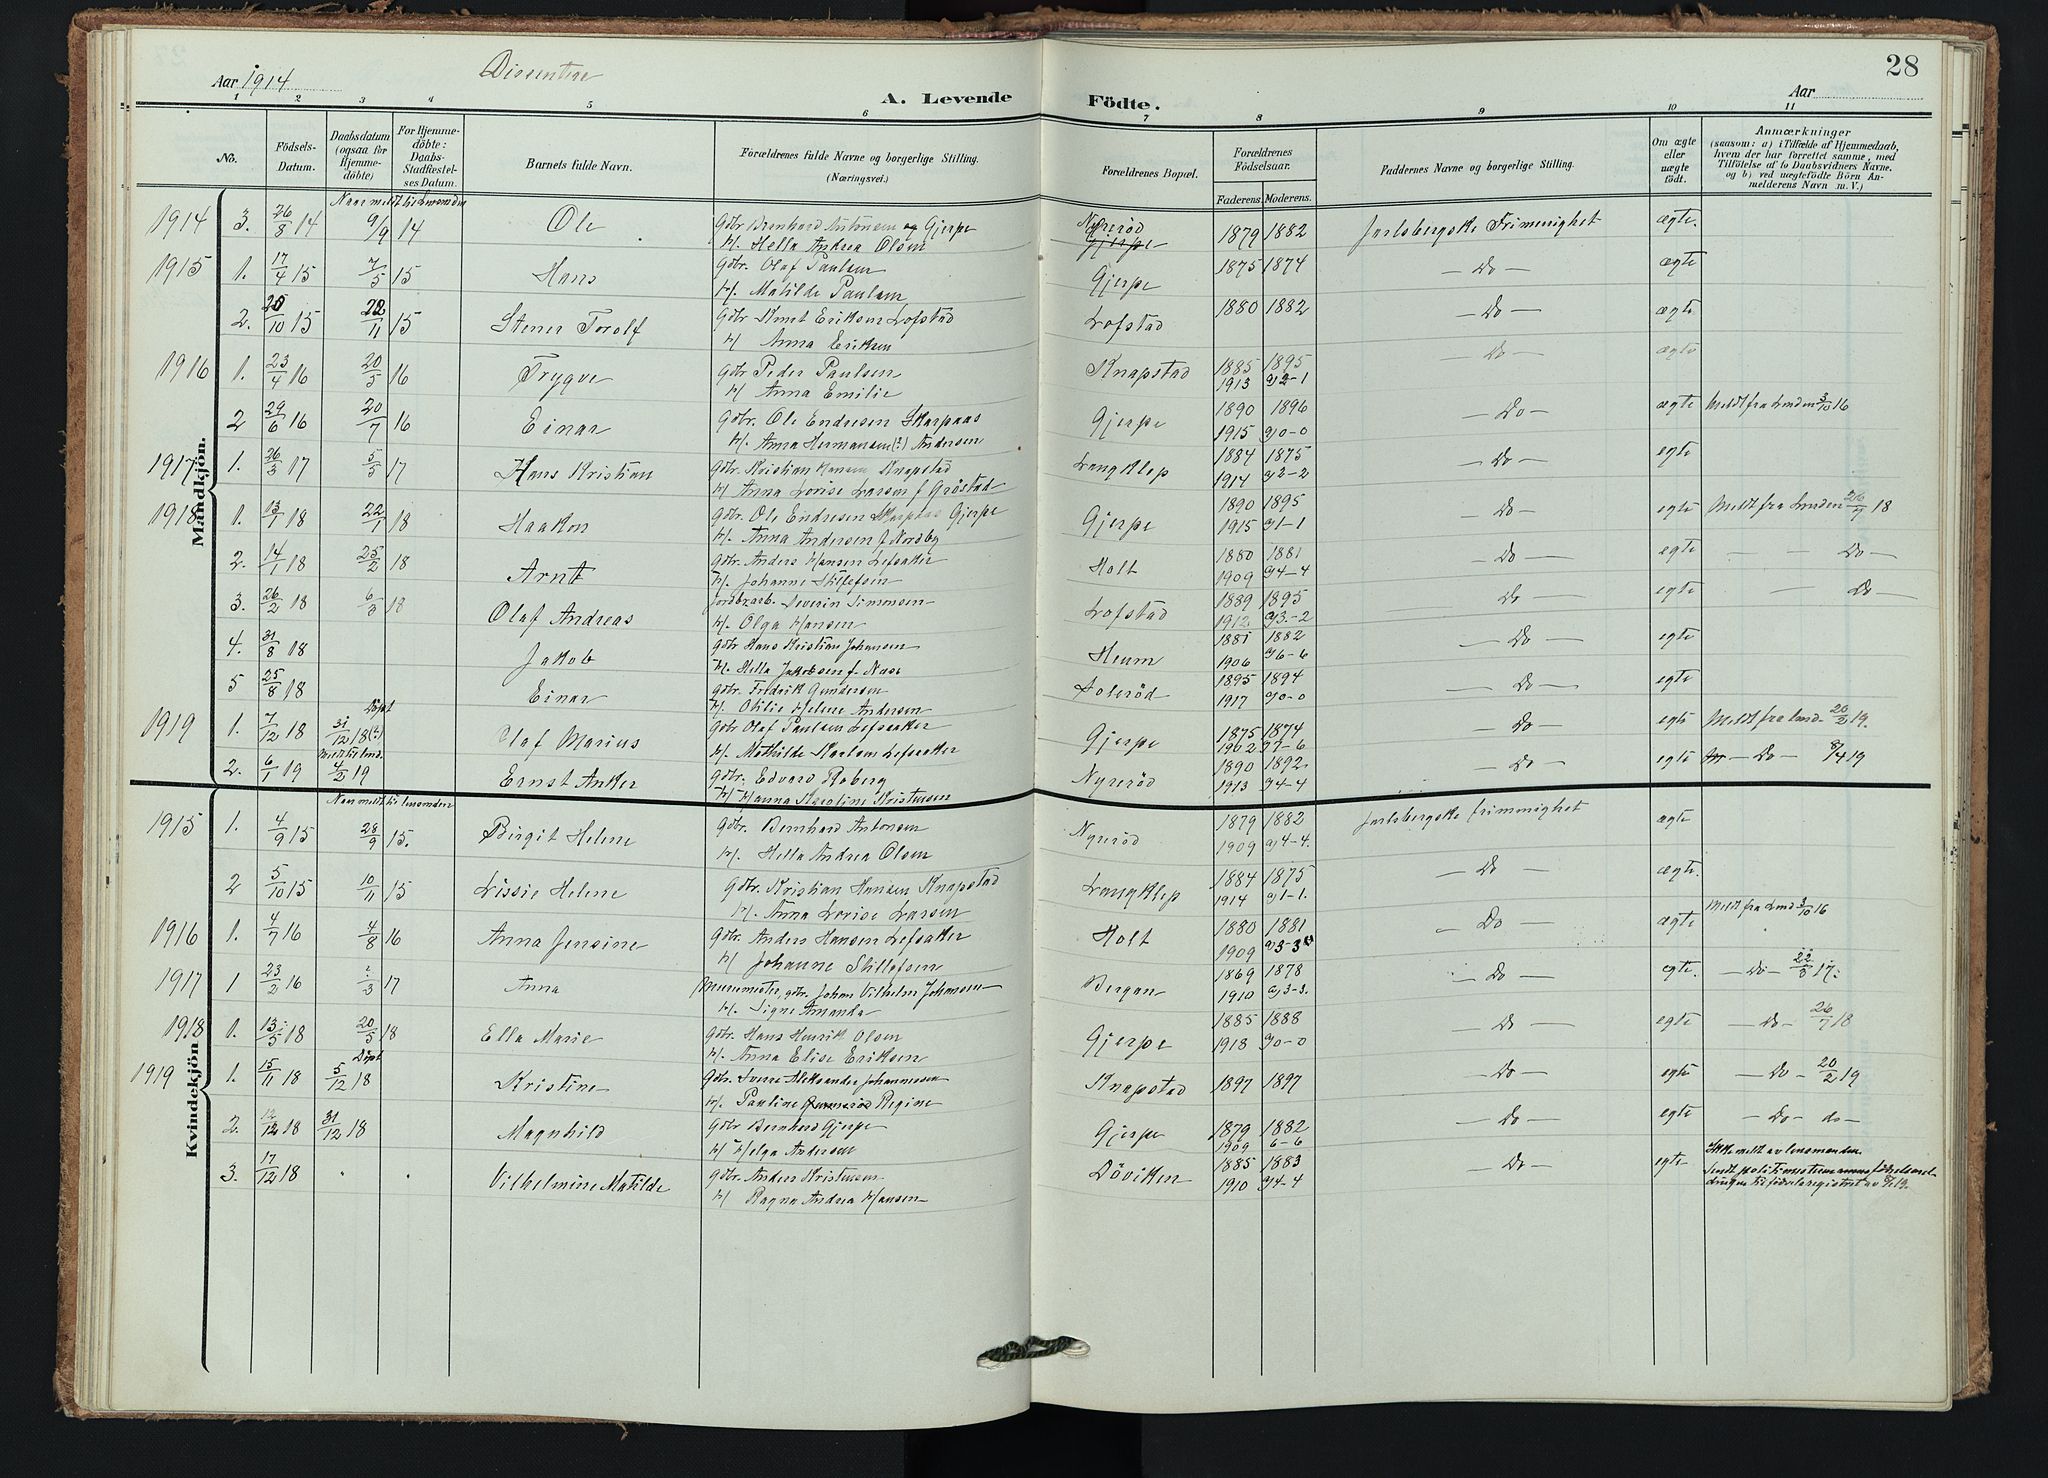 28
Aar 1914 Dissentere
Aar
A. Levende Födte.
1 2 3 4 5 6 7 8 9 10 11
No.
Födsels-Datum.
Daabsdatum (ogsaa for Hjemme-döbte)
For Hjemme-döbte: Daabs-Stadfæstel-ses Datum.
Barnets fulde Navn.
Forældrenes fulde Navne og borgerlige Stilling. (Næringsvei.)
Forældrenes Bopæl.
Forældrenes Födselsaar.
Faderens. Moderens.
Faddernes Navne og borgerlige Stilling.
Om ægte eller uægte födt.
Anmærkninger (saasom: a) i Tilfælde af Hjemmedaab, hvem der har forrettet samme, med Tilföielse af to Daabsvidners Navne, og b) ved uægtefödte Börn Anmelderens Navn m. V.)
Mandkjön.
Naar meldt til lensmanden
1914 3. 26/8 14 9/9 14 Ole Gdbr Bernhard Antonsen og Gjerpe Nyreröd 1879 1882 Jarlsbergske Frimenighet ægte.
H. Hella Andrea Olsen Gjerpe
1915 1. 17/4 15 7/5 15 Hans Gdbr. Olaf Paulsen Gjerpe 1875 1874 — Do — ægte
H. Matilde Paulsen
2. 20/10 15 22/11 15 Stener Torolf Gdbr Knut Eriksen Lofstad Lofstad 1880 1882 — Do — ægte
H. Anna Eriksen
1916 1. 23/4 16 20/5 16 Trygve Gdbr Peder Paulsen Knapstad 1885 1895 — Do — ægte
H. Anna Emilie 1913 92-1
2 29/6 16 20/7 16 Einar Gdbr. Ole Endresen Skarpaas Gjerpe 1890 1896 — Do — ægte Meldt fra Lmden 3/10 16
H. Anna Hermansen(?) Andersen 1915 90-0
1917 1. 26/3 17 5/5 17 Hans Kristian Gdbr. Kristian Hansen Knapstad Langklep 1884 1875 — Do — egte
H Anna Lovise Larsen f Gröstad 1914 92-2
1918 1. 13/1 18 22/1 18 Haakon Gdbr. Ole Endresen Skarpaas Gjerpe Gjerpe 1890 1895 — Do — egte Meldt fra Lmden 26/7 18
H. Anna Andersen f Nordby 1915 91-1
2. 14/1 18 25/2 18 Arnt Gdbr. Anders Hansen Lefsaker Holt 1880 1881 — Do — egte — — Do —
H. Johanne Skilefsen 1909 94-4
3. 26/2 18 6/3 18 Olaf Andreas Jordbrarb. Severin Simonsen Lofstad 1889 1895 — Do — egte — — Do —
H. Olga Hansen 1912 93-2
4. 31/8 18 Jakob Gdbr Hans Kristian Johansen Heum 1881 1882 — Do — egte
H. Hella Jakobsen f. Næss 1906 96-6
5 25/8 18 Einar Gdbr. Fredrik Gundersen Soleröd 1895 1894 — Do — egte
H. Otilie Helene Andersen 1917 90-0
Döpt
1919 1. 7/12 18 31/12 18(?) Olaf Marius Gdbr Olaf Paulsen Lefsaker Gjerpe 1875 1874 — Do — egte Meldt fra lmd. 20/2 19.
H. Mathilde Karlsen Lefsaker 1902 97-6
Meldt til lmd.
2. 6/1 19 4/2 19 Ernst Anker Gdbr. Edvard Roberg Nyreröd 1890 1892 — Do — egte — Do — 8/4 19
H Hanna Karoline Kristensen 1913 94-4
Kvindekjön
Naar meldt til lensmanden
1915 1. 4/9 15 28/9 15. Birgit Helene Gdbr. Bernhard Antonsen Nyreröd 1879 1882 Jarlsbergske frimenighet ægte
H. Hella Andrea Olsen 1909 94-4.
2 5/10 15 10/11 15 Lissie Helene Gdbr. Kristian Hansen Knapstad Langklep 1884 1875 — Do — ægte.
H. Anna Lovise Larsen 1914 91-1.
1916 1. 4/7 16 4/8 16 Anna Jensine Gdbr. Anders Hansen Lefsaker Holt 1880 1881 — Do — ægte Meldt fra Lmd 3/10 16
H Johanne Skillefsen 1909 93-3
1917 1 23/2 16 2/3 17 Anna Murermester, gdbr. Johan Vilhelm Johansen Bergan 1869 1878 — Do — egte. — Do — 22/3 17.
H. Signe Amanda 1910 93-3.
1918 1. 13/5 18 20/5 18 Ella Marie Gdbr. Hans Henrik Olsen Gjerpe 1885 1888 — Do — egte — Do — 26/7 18
H. Anna Elise Eriksen 1918 90-0
Döpt
1919 1. 15/11 18 5/12 18 Kristine Gdbr. Sverre Aleksander Johannesen Knapstad 1897 1897 — Do — egte — Do — 20/2 19
H. Pauline Regine
2. 12/12 18 31/12 18 Magnhild Gdbr Bernhard Gjerpe Gjerpe 1879 1882 — Do — egte — Do — do —
H Helga Andersen 1909 6-6
3. 17/12 18 " " Vilhelmine Matilde Gdbr. Anders Kristensen Döviken 1885 1883 — Do — egte Ikke meldt av lensmanden.
H Ragna Andrea Hansen 1910 94-4